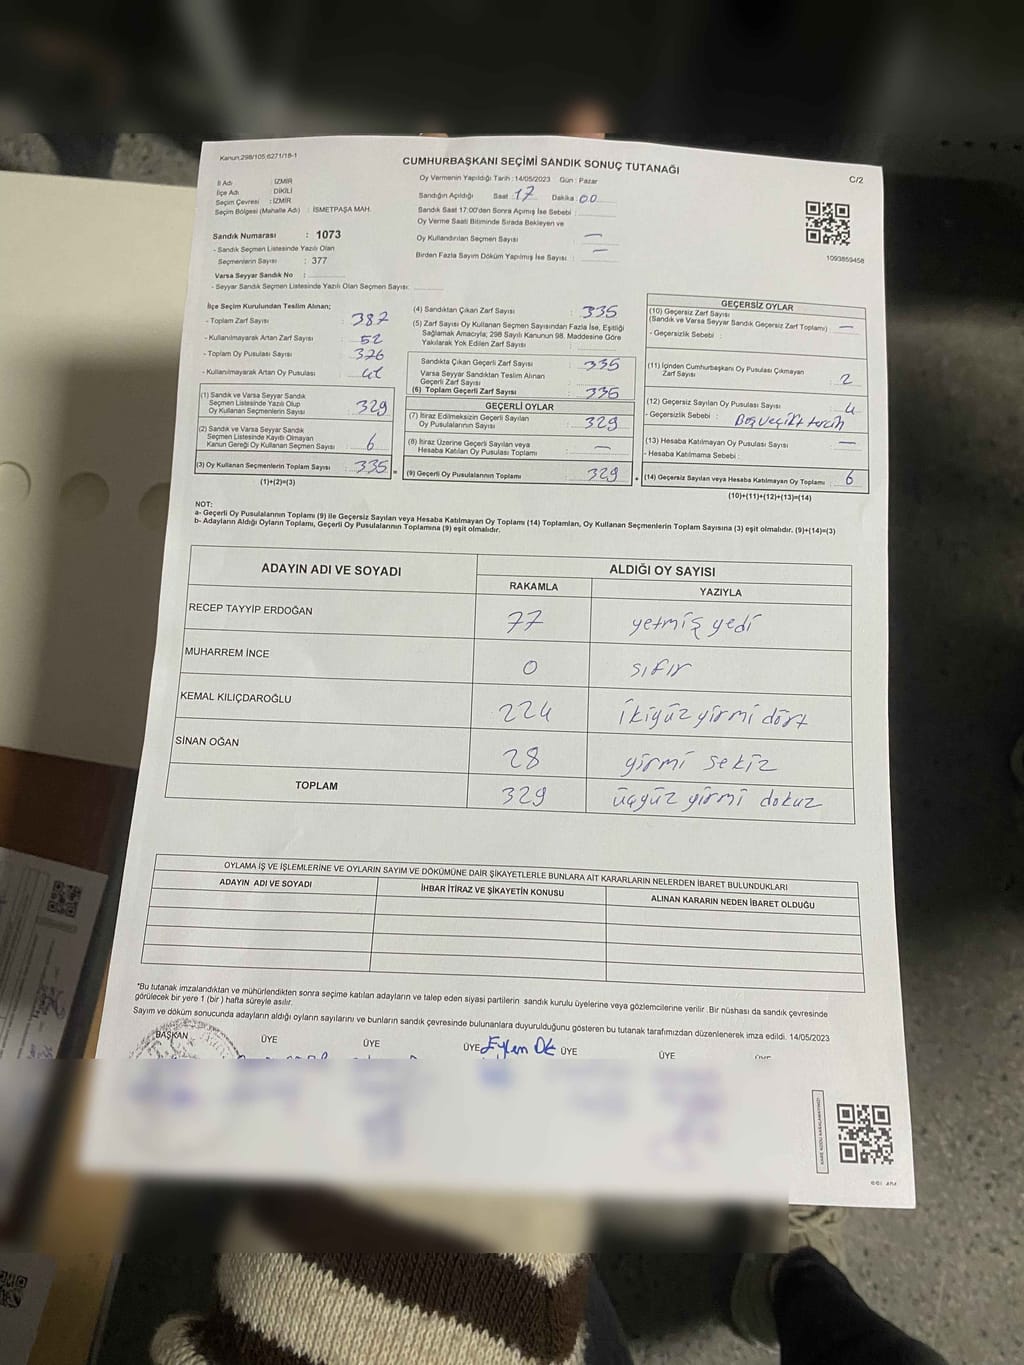 Kanun;298/105;6271/18-1
CUMHURBAŞKANI SEÇİMİ SANDIK SONUÇ TUTANAĞI
C/2
İl Adı : İZMİR
İlçe Adı : DİKİLİ
Seçim Çevresi : İZMİR
Seçim Bölgesi (Mahalle Adı) : İSMETPAŞA MAH.
Sandık Numarası : 1073
- Sandık Seçmen Listesinde Yazılı Olan
Seçmenlerin Sayısı : 377
Varsa Seyyar Sandık No :
- Seyyar Sandık Seçmen Listesinde Yazılı Olan Seçmen Sayısı:
Oy Vermenin Yapıldığı Tarih : 14/05/2023 Gün : Pazar
Sandığın Açıldığı Saat 17 Dakika : 00
Sandık Saat 17:00'den Sonra Açımış İse Sebebi :
Oy Verme Saati Bitiminde Sırada Bekleyen ve
Oy Kullandırılan Seçmen Sayısı : —
Birden Fazla Sayım Döküm Yapılmış İse Sayısı : —
1093859458
İlçe Seçim Kurulundan Teslim Alınan;
- Toplam Zarf Sayısı : 387
- Kullanılmayarak Artan Zarf Sayısı : 52
- Toplam Oy Pusulası Sayısı : 376
- Kullanılmayarak Artan Oy Pusulası : 41
(1) Sandık ve Varsa Seyyar Sandık
Seçmen Listesinde Yazılı Olup
Oy Kullanan Seçmenlerin Sayısı : 329
(2) Sandık ve Varsa Seyyar Sandık
Seçmen Listesinde Kayıtlı Olmayan
Kanun Gereği Oy Kullanan Seçmen Sayısı : 6
(3) Oy Kullanan Seçmenlerin Toplam Sayısı : 335
(1)+(2)=(3)
(4) Sandıktan Çıkan Zarf Sayısı : 335
(5) Zarf Sayısı Oy Kullanan Seçmen Sayısından Fazla İse, Eşitliği
Sağlamak Amacıyla; 298 Sayılı Kanunun 98. Maddesine Göre
Yakılarak Yok Edilen Zarf Sayısı :
Sandıkta Çıkan Geçerli Zarf Sayısı : 335
Varsa Seyyar Sandıktan Teslim Alınan
Geçerli Zarf Sayısı :
(6) Toplam Geçerli Zarf Sayısı : 335
GEÇERLİ OYLAR
(7) İtiraz Edilmeksizin Geçerli Sayılan
Oy Pusulalarının Sayısı : 329
(8) İtiraz Üzerine Geçerli Sayılan veya
Hesaba Katılan Oy Pusulası Toplamı : —
(9) Geçerli Oy Pusulalarının Toplamı : 329
GEÇERSİZ OYLAR
(10) Geçersiz Zarf Sayısı
(Sandık ve Varsa Seyyar Sandık Geçersiz Zarf Toplamı) : —
- Geçersizlik Sebebi :
(11) İçinden Cumhurbaşkanı Oy Pusulası Çıkmayan
Zarf Sayısı : 2
(12) Geçersiz Sayılan Oy Pusulası Sayısı : 4
- Geçersizlik Sebebi : Boş ve çift tercih
(13) Hesaba Katılmayan Oy Pusulası Sayısı : —
- Hesaba Katılmama Sebebi :
(14) Geçersiz Sayılan veya Hesaba Katılmayan Oy Toplamı : 6
(10)+(11)+(12)+(13)=(14)
NOT:
a- Geçerli Oy Pusulalarının Toplamı (9) ile Geçersiz Sayılan veya Hesaba Katılmayan Oy Toplamı (14) Toplamları, Oy Kullanan Seçmenlerin Toplam Sayısına (3) eşit olmalıdır. (9)+(14)=(3)
b- Adayların Aldığı Oyların Toplamı, Geçerli Oy Pusulalarının Toplamına (9) eşit olmalıdır.
ADAYIN ADI VE SOYADI ALDIĞI OY SAYISI
RAKAMLA YAZIYLA
RECEP TAYYİP ERDOĞAN 77 yetmiş yedi
MUHARREM İNCE 0 sıfır
KEMAL KILIÇDAROĞLU 224 ikiyüz yirmi dört
SİNAN OĞAN 28 yirmi sekiz
TOPLAM 329 üçyüz yirmi dokuz
OYLAMA İŞ VE İŞLEMLERİNE VE OYLARIN SAYIM VE DÖKÜMÜNE DAİR ŞİKAYETLERLE BUNLARA AİT KARARLARIN NELERDEN İBARET BULUNDUKLARI
ADAYIN ADI VE SOYADI İHBAR İTİRAZ VE ŞİKAYETİN KONUSU ALINAN KARARIN NEDEN İBARET OLDUĞU
*Bu tutanak imzalandıktan ve mühürlendikten sonra seçime katılan adayların ve talep eden siyasi partilerin sandık kurulu üyelerine veya gözlemcilerine verilir. Bir nüshası da sandık çevresinde
görülecek bir yere 1 (bir) hafta süreyle asılır.
Sayım ve döküm sonucunda adayların aldığı oyların sayılarını ve bunların sandık çevresinde bulunanlara duyurulduğunu gösteren bu tutanak tarafımızdan düzenlenerek imza edildi. 14/05/2023
BAŞKAN ÜYE ÜYE ÜYE Eylem ÜYE ÜYE